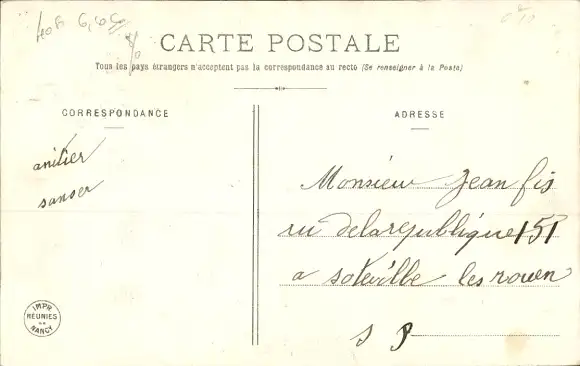 CARTE POSTALE
Tous les pays étrangers n'acceptent pas la correspondance au recto (Se renseigner à la Poste)
CORRESPONDANCE
ADRESSE
anitier
sanser
Monsieur Jean fis
ru delarepublique 151
a soteville les rouen
s P
IMPR
RÉUNIES
DE
NANCY